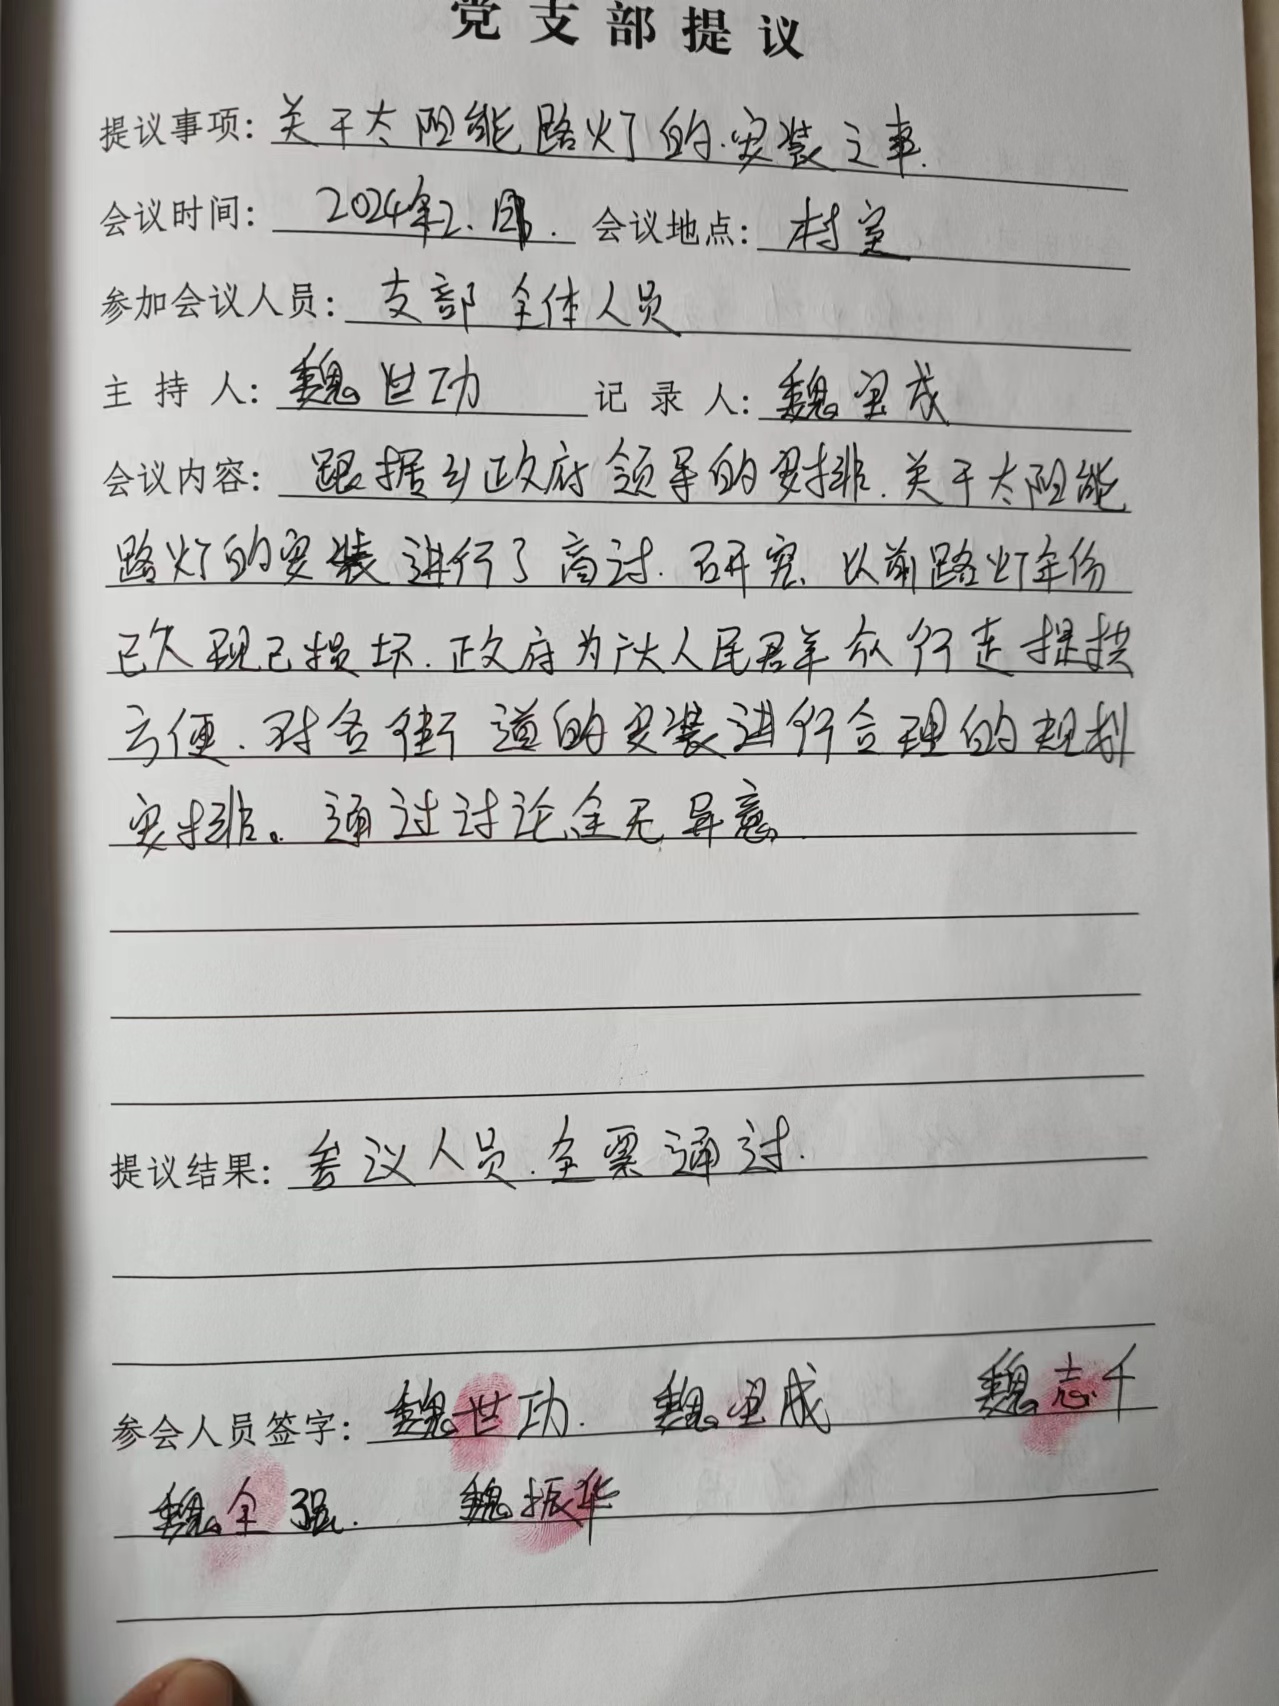 党支部提议
提议事项：关于太阳能路灯的.安装之事.
会议时间：2024年2.	会议地点：村室
参加会议人员：支部全体人员
主持人：魏世功 记录人：魏成
会议内容：跟据乡政府领导的安排.关于太阳能
路灯的安装进行了商讨.研究.以前路灯年份
已久现已损坏.政府为广大人民君羊众行走提拱
方便.对各街道的安装进行合理的规划
安排。通过讨论全无异意.
提议结果：参议人员.全票通过.
参会人员签字：魏世功. 魏成 魏志千
魏全强. 魏振华